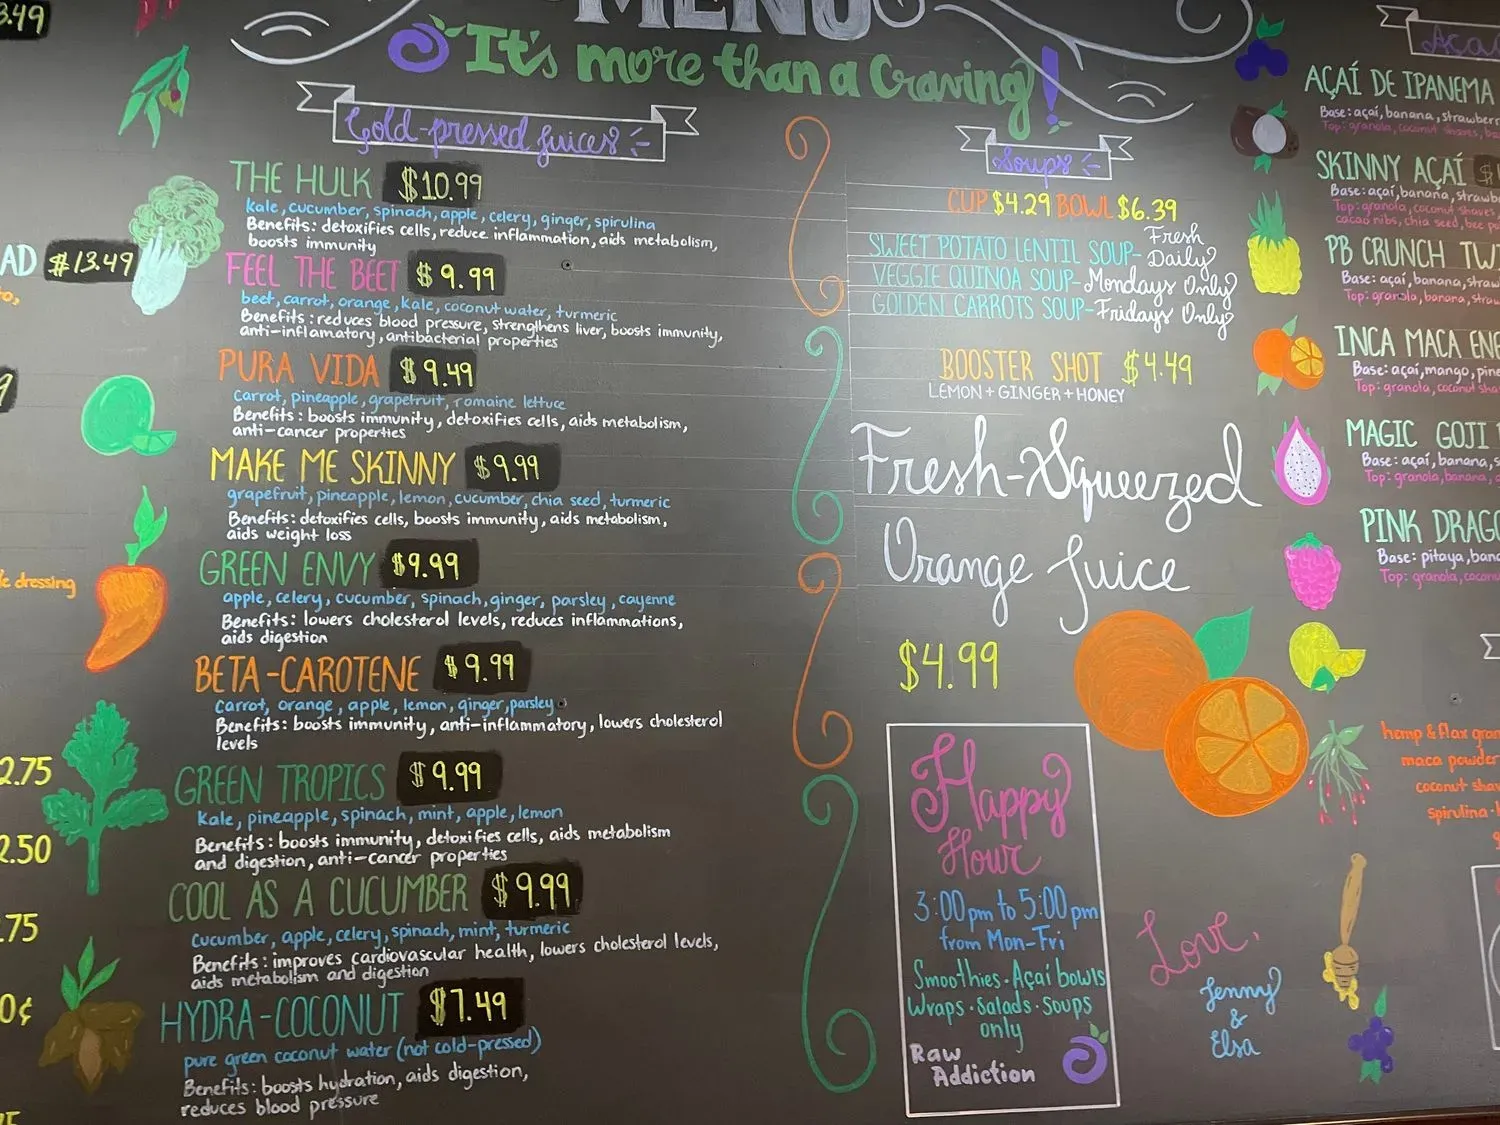 3.49
MENU
It's more than a Craving!
AD $13.49
dressing
2.75
2.50
.75
0¢
Cold-pressed Juices
THE HULK $10.99
kale, cucumber, spinach, apple, celery, ginger, spirulina
Benefits: detoxifies cells, reduce inflammation, aids metabolism,
boosts immunity
FEEL THE BEET $9.99
beet, carrot, orange, kale, coconut water, turmeric
Benefits: reduces blood pressure, strengthens liver, boosts immunity,
anti-inflamatory, antibacterial properties
PURA VIDA $9.49
Carrot, pineapple, grapefruit, romaine lettuce
Benefits: boosts immunity, detoxifies cells, aids metabolism,
anti-cancer properties
MAKE ME SKINNY $9.99
grapefruit, pineapple, lemon, cucumber, chia seed, turmeric
Benefits: detoxifies cells, boosts immunity, aids metabolism,
aids weight loss
GREEN ENVY $9.99
apple, celery, cucumber, spinach, ginger, parsley, cayenne
Benefits: lowers cholesterol levels, reduces inflammations,
aids digestion
BETA-CAROTENE $9.99
carrot, orange, apple, lemon, ginger, parsley
Benefits: boosts immunity, anti-inflammatory, lowers cholesterol
levels
GREEN TROPICS $9.99
Kale, pineapple, spinach, mint, apple, lemon
Benefits: boosts immunity, detoxifies cells, aids metabolism
and digestion, anti-cancer properties
COOL AS A CUCUMBER $9.99
Cucumber, apple, celery, spinach, mint, turmeric
Benefits: improves cardiovascular health, lowers cholesterol levels,
aids metabolism and digestion
HYDRA-COCONUT $7.49
pure green coconut water (not cold-pressed)
Benefits: boosts hydration, aids digestion,
reduces blood pressure
Soups
CUP $4.29 BOWL $6.39
SWEET POTATO LENTIL SOUP- Fresh Daily
VEGGIE QUINOA SOUP- Mondays Only
GOLDEN CARROTS SOUP- Fridays Only
BOOSTER SHOT $4.49
LEMON + GINGER + HONEY
Fresh-Squeezed
Orange Juice
$4.99
Happy
Hour
3:00pm to 5:00pm
from Mon-Fri
Smoothies · Açaí bowls
Wraps · Salads · Soups
only
Raw
Addiction
Love,
Jenny
&
Elsa
AÇAÍ DE IPANEMA
Base: açaí, banana, strawberr
Top: granola, coconut shaves, ba
SKINNY AÇAÍ $
Base: açaí, banana, strawb
Top: granola, coconut shaves,
cacao nibs, chia seed, bee po
PB CRUNCH TWI
Base: açaí, banana, straw
Top: granola, banana, straw
INCA MACA ENE
Base: açaí, mango, pine
Top: granola, coconut sha
MAGIC GOJI
Base: açaí, banana, s
Top: granola, banana,
PINK DRAGO
Base: pitaya, bana
Top: granola, coconu
hemp & flax gran
maca powder
coconut shav
spirulina ·